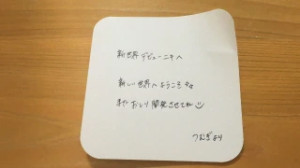 新世界デビューニキへ
新しい世界へようこそ
また おしり開発させてね
つむぎより